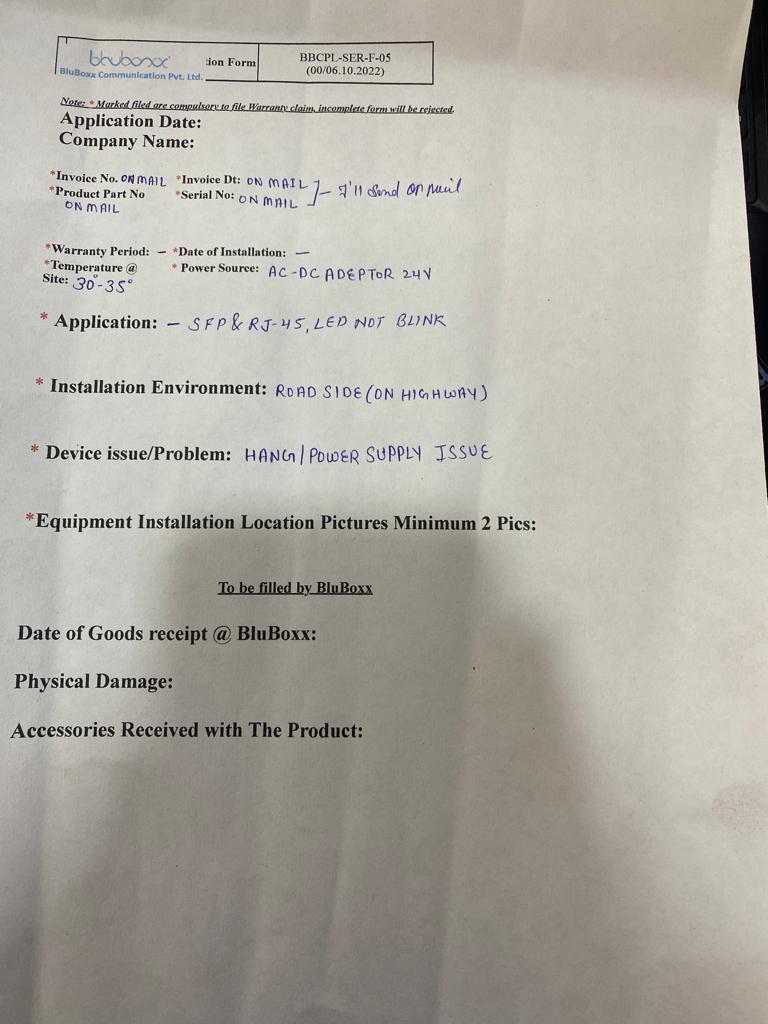 bluboxx
BluBoxx Communication Pvt. Ltd.
tion Form
BBCPL-SER-F-05
(00/06.10.2022)
Note: * Marked filed are compulsory to file Warranty claim, incomplete form will be rejected.
Application Date:
Company Name:
*Invoice No. ON MAIL *Invoice Dt: ON MAIL
*Product Part No *Serial No: ON MAIL - I'll send on mail
ON MAIL
*Warranty Period: - *Date of Installation: -
*Temperature @ * Power Source: AC-DC ADEPTOR 24V
Site: 30°-35°
* Application: - SFP & RJ-45, LED NOT BLINK
* Installation Environment: ROAD SIDE (ON HIGHWAY)
* Device issue/Problem: HANG / POWER SUPPLY ISSUE
*Equipment Installation Location Pictures Minimum 2 Pics:
To be filled by BluBoxx
Date of Goods receipt @ BluBoxx:
Physical Damage:
Accessories Received with The Product: